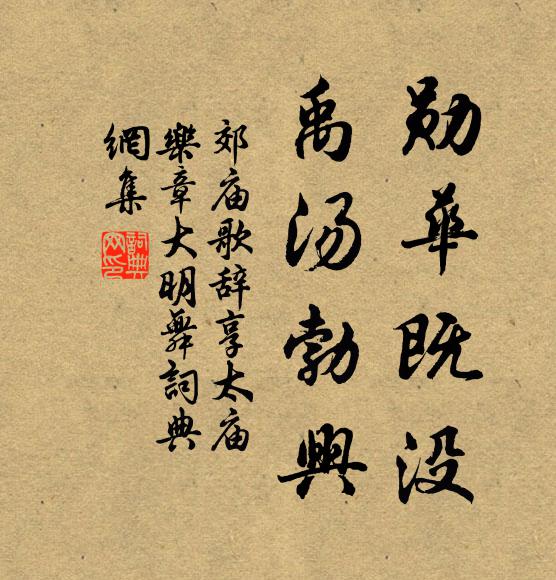 勋华既没
禹汤勃興
郊庙歌辞享太庙
樂章大明舞詞典
網集
詞典
网印